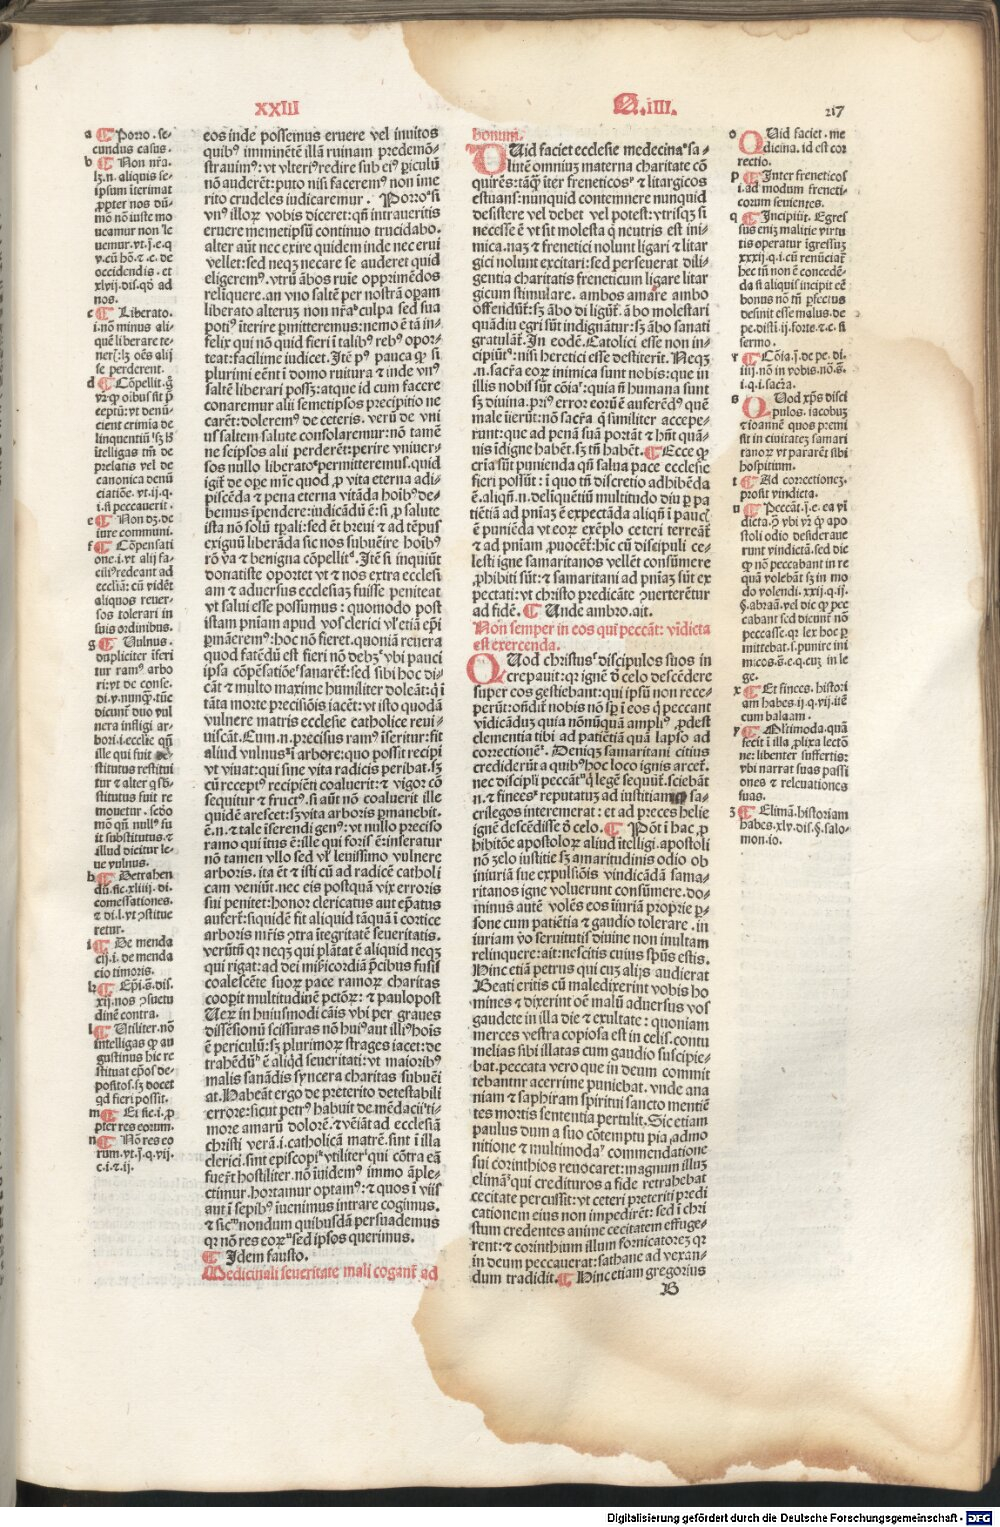 XXIII
Q. iIII.
217
a ¶ Porro. se-
cundus casus.
b ¶ Non nr̄a.
lꝫ.n. aliquis se-
ipsum īterimat
ꝓpter nos dū-
mō nō iuste mo
c ¶ Liberato.
i.nō minus ali-
quē liberare te-
se perderent.
e ¶ Non dꝫ. de
iure communi.
f ¶ Cōpensati
one.i.vt alij fa-
aliquos reuer-
sos tolerari in
suis ordinibus.
g ¶ Vulnus.
dupliciter īseri
tur ramꝰ arbo
dicunt̄ duo vul
nera infligi ar-
ille qui fuit
stitutus restitui
stitutus fuit re
mouetur. secūdo
it substitutus.⁊
illud dicitur le-
ue vulnus.
h ¶ Detrahen
comessationes.
retur.
i ¶ De menda
cij.i. de menda
cio timoris.
k ¶ Epī.s.dis.
dinē contra.
l ¶ Utiliter.nō
intelligas ꝙ au
gustinus hic re
stituat ep̄os de-
positos.sꝫ docet
qd fieri possit.
m ¶ Et sic.i.ꝓ
pter res eorum.
n ¶ Nō res eo
rum.vt.j.q.vij.
c.i.⁊.ij.
eos inde possemus eruere vel inuitos
quibꝰ imminētē illā ruinam predemō-
strauimꝰ:vt vlteriꝰredire sub eiꝰ ꝑiculū
nō auderēt:puto nisi faceremꝰ non ime
rito crudeles iudicaremur. Porroᵃsi
vnꝰ illoꝝ vobis diceret:qn̄ intraueritis
eruere memetipsū continuo trucidabo.
alter aūt nec exire quidem inde nec erui
vellet:sed neqꝫ necare se auderet quid
eligeremꝰ.vtrū ābos ruie opprimēdos
relīquere.an vno saltē per nostrā oꝑam
liberato alterum non nr̄aᵇculpa sed sua
potiꝰ īterire ꝑmitteremus:nemo ē tā in-
felix qui nō quid fieri ī talibꝰ rebꝰ opor-
teat:facilime iudicet.Itē pꝰ pauca ꝙ si
plurimi eēnt ī domo ruitura ⁊ inde vnꝰ
saltē liberari possꝫ:atqꝫ id cum facere
conaremur alij semetipsos precipitio ne
carēt:doleremꝰ de ceteris. verū de vni
us saltem salute consolaremur:nō tamē
ne seipsos alij perderēt:perire vniuer-
sos nullo liberatoᶜpermitteremus.quid
igit̄ de oꝑe mīe quod ꝓ vita eterna adi-
piscēda ⁊ pena eterna vitāda hoībꝰde-
bemus īpendere:iudicādū ē:si ꝓ salute
ista nō solū tꝑali:sed ēt breui ⁊ ad tēpus
exiguū liberāda sic nos subuēire hoībꝰ
rō va ⁊ benigna cōpellitᵈ.Itē si inquiūt
donatiste oportet vt ⁊ nos extra ecclesi
am ⁊ aduersus ecclesiaꝫ fuisse peniteat
vt salui esse possumus:quomodo post
istam pniam apud vos clerici vl̓ etiā ep̄i
ꝑmāneremꝰ:hoc nō fieret.quoniā reuera
quod fatēdū est fieri nō debꝫᵉvbi pauci
ipsa cōpēsatiōeᶠsanarēt:sed sibi hoc di-
cāt ⁊ multo maxime humiliter doleāt:ꝗ ī
tāta morte precisiōis iacēt:vt isto quodā
vulnere matris ecclesie catholice reui-
uiscāt.Cum n.precisus ramꝰ īserit̄ur:fit
aliud vulnusᵍī arbore:quo possit recipi
vt viuat:qui sine vita radicis peribat.sꝫ
cū receptꝰ recipiēti coaluerit:⁊ vigor cō
sequitur ⁊ fructꝰ.si aūt nō coaluerit ille
quidē arescet:sꝫ vita arboris ꝑmanebit.
ē.n.⁊ tale īserendi genꝰ:vt nullo preciso
ramo qui ītus ē:ille qui foris ē:inseratur
nō tamen vllo sed vl̓ leuissimo vulnere
arboris.ita ēt ⁊ isti cū ad radicē catholi
cam veniūt.nec eis postquā vix erroris
sui penitet:honor clericatus aut ep̄atus
aufert̄:siquidē fit aliquid tāquā ī cortice
arboris mr̄is ꝯtra ītegritatē seueritatis.
verūtn̄ qr neqꝫ qui plātat ē aliquid neqꝫ
qui rigat:ad dei miꝭicordiā p̄cibus fusis
coalescēte suoꝝ pace ramoꝝ charitas
cooꝑit multitudinē pctōꝝ:⁊ paulopost
Ueꝝ in huiusmodi cāis vbi per graues
dissēsionū scissuras nō huiꝰaut illiꝰhoīs
ē periculū:sꝫ plurimoꝝ strages iacet:de
trahēdūʰē aliqd seueritati:vt maioribꝰ
malis sanādis syncera charitas subuēi
at.Habeāt ergo de preterito detestabili
errore:sicut petrꝰ habuit de.mēdaciiⁱti-
more amarū dolorē.⁊vēiāt ad ecclesiā
christi verā.i.catholicā matrē.sint ī illa
clerici.sint episcopiᵏvtiliterˡqui cōtra eā
fuer̄t hostiliter.nō īuidemꝰ immo āple-
ctimur.hortamur optamꝰ:⁊ quos ī viis
aut ī sepibꝰ īuenimus intrare cogimus.
⁊ sicᵐnondum quibusdā persuademus
qr nō res eoꝝⁿsed ipsos querimus.
¶ Idem fausto.
Medicinali seueritate mali cogant̄ ad
bonum.
QUid faciet ecclesie medecinaᵒsa-
lutē omniuꝫ materna charitate cō
quirēs:tāꝙ īter freneticosᵖ ⁊ litargicos
estuans:nunquid contemnere nunquid
desistere vel debet vel potest:vtrisqꝫ si
necesse ē vt sit molesta ꝗ neutris est ini-
mica.naꝫ ⁊ frenetici nolunt ligari ⁊ litar
gici nolunt excitari:sed perseuerat dili-
gentia charitatis freneticum ligare litar
gicum stimulare. ambos amare ambo
offendūt̄:sꝫ ābo di ligūt̄.ā bo molestari
quādiu egri sūt indignātur:sꝫ ābo sanati
gratulāt̄.In eodē.Catolici esse non in-
cipiūtᵠ:nisi heretici esse destiterīt.Neqꝫ
.n.sacr̄a eoꝝ inimica sunt nobis:que in
illis nobiſ sūt cōiaʳ:quia n̄ humana sunt
sꝫ diuina.pri̓ error eorū ē auferēdꝰ quē
male īuerūt:nō sacr̄a ꝗ similiter accepe-
runt:que ad penā suā portāt ⁊ hn̄t quā-
uis īdigne habēt.sꝫ tn̄ habēt.¶ Ecce ꝙ
cr̄ia sūt punienda qn̄ salua pace ecclesie
fieri possūt:ī quo tn̄ discretio adhibēda
ē.aliqn̄.n.delīquētiū multitudo diu ꝑ pa
tiētiā ad pn̄iaꝫ ē expectāda aliqn̄ ī paucꝭ
ē puniēda vt eoꝝ exēplo ceteri terreāt̄
⁊ ad pniam ꝓuocēt̄:hic cū discipuli ce-
lesti igne samaritanos vellēt consūmere
ꝓhibiti sūt:⁊ samaritani ad pn̄iaꝫ sūt ex
pectati:vt christo predicāte ꝯuerterētur
ad fidē.¶ Unde ambro.ait.
Non semper in eos qui peccāt: vīdicta
est exercenda.
QUod christusˢdiscipulos suos in
crepauit:qr ignē d̄ celo descēdere
super eos gestiebant:qui ipsū non rece-
perūt:on̄dit̄ nobis nō sp̄ ī eos ꝗ peccant
vīdicāduꝫ quia nōnūquā ampliꝰ ꝓdest
clementia tibi ad patiētiā quā lapso ad
correctionēᵗ.Deniqꝫ samaritani citius
crediderūt a quibꝰhoc loco ignis arcet̄.
nec discipli̓ peccātᵘꝗ legē sequūt̄.sciebāt
n.⁊ fineesˣreputatuꝫ ad iustitiam sa-
crilegos interemerat:et ad preces helie
ignē descēdisse d̄ celo.¶ Pōt ī hac ꝓ
hibitōe apostoloꝝ aliud ītelligi.apostoli
nō zelo iustitie sꝫ amaritudinis odio ob
iniuriā sue expulsiōis vindicādā sama-
ritanos igne voluerunt consūmere.do-
minus autē volēs eos īiuriā proprie ꝑ-
sone cum patiētia ⁊ gaudio tolerare.in
iuriam v̄o seruitutis diuine non inultam
relinquere:ait:nescitis cuius spūs estis.
Hinc etiā petrus qui cuꝫ alijs audierat
Beati eritis cū maledixerint vobis ho
mines ⁊ dixerint oē malū aduersus vos
gaudete in illa die ⁊ exultate:quoniam
merces vestra copiosa est in celis.contu
melias sibi illatas cum gaudio suscipie-
bat.peccata vero que in deum commit
tebantur acerrime puniebat.vnde ana
niam ⁊ saphiram spiritui sancto mentiē
tes mortis sententia pertulit.Sic etiam
paulus dum a suo cōtemptu pia admo
nitione ⁊ multimodaʸ commendatione
sui corinthios reuocaret:magnum illuꝫ
elimāᶻqui credituros a fide retrahebat
cecitate percussit:vt ceteri preteriti predi
cationem eius non impedirēt:sed ī chri
stum credentes anime cecitatem effuge-
rent:⁊ corinthium illum fornicatoreꝫ qr
in deum peccauerat:sathane ad vexan-
dum tradidit.¶ Hinc etiam gregorius
B
o QUid faciet.me
dicina.id est cor
rectio.
p ¶ Inter freneticos
i.ad modum freneti-
corum seuientes.
q ¶ Incipiūt. Egres
sus enīꝫ malitie virtu
tis operatur īgressuꝫ
da si aliquis incipit eē
bonus nō tn̄ ꝑfecius
desinit esse malus.de
sermo.
r ¶ Cōia.j.de pe.di.
iiij.nō in vobis.nō.s.
i.q.i.sacr̄a.
s QUod xp̄s disci
pulos. iacobuꝫ
⁊ ioannē quos p̄mi
sit in ciuitateꝫ samari
tanoꝝ vt pararēt sibi
hospitium.
t ¶ Ad correctioneꝫ.
prosit vindicta.
stoli odio desideraue
runt vindictā.sed dic
ꝙ nō peccabant in re
quā volebāt sꝫ in mo
do volendi.xxij.q.ij.
cabant sed dicunt̄ nō
peccasse.qr lex hoc ꝑ
mittebat.s.punire ini
micos.s.e.q.cuꝫ in le
ge.
x ¶ Et finees.histori
am habes.ij.q.vij.itē
cum balaam.
y ¶ Mltimoda.quā
fecit ī illa ꝓlixa lectō
ne:libenter suffertis:
vbi narrat suas passi
ones ⁊ releuationes
suas.
z ¶ Elimā.historiam
habes.xlv.dis.§.salo-
mon.io.
Digitalisierung gefördert durch die Deutsche Forschungsgemeinschaft - DFG